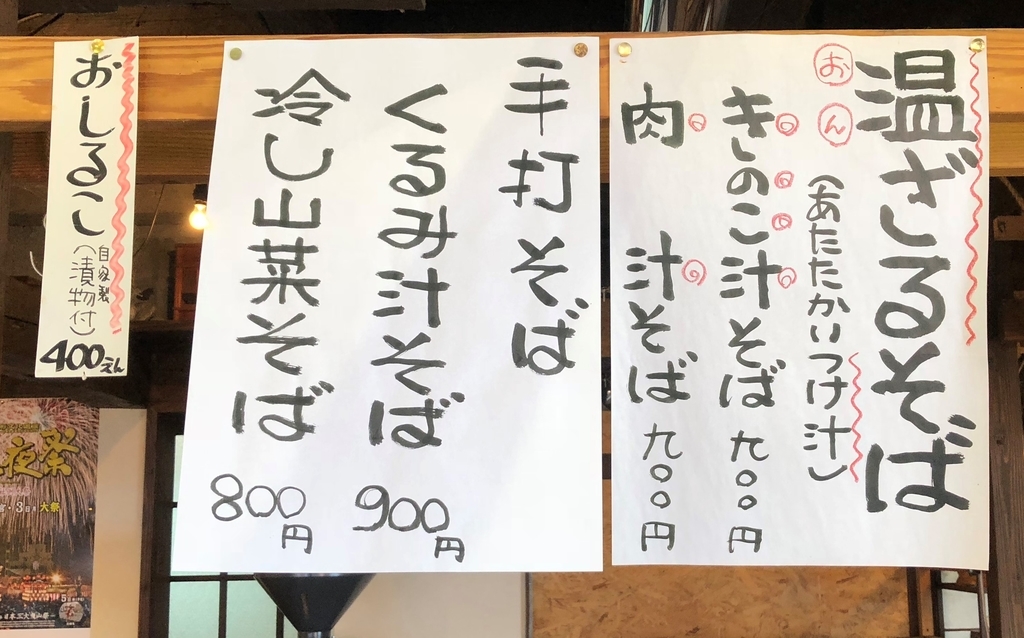 温ざるそば
おん
(あたたかいつけ汁)
きのこ汁そば 九〇〇円
肉汁そば 九〇〇円
手打そば
くるみ汁そば 900円
冷し山菜そば 800円
おしるこ
自家製
(漬物付)
400えん
夜祭
3日 大祭